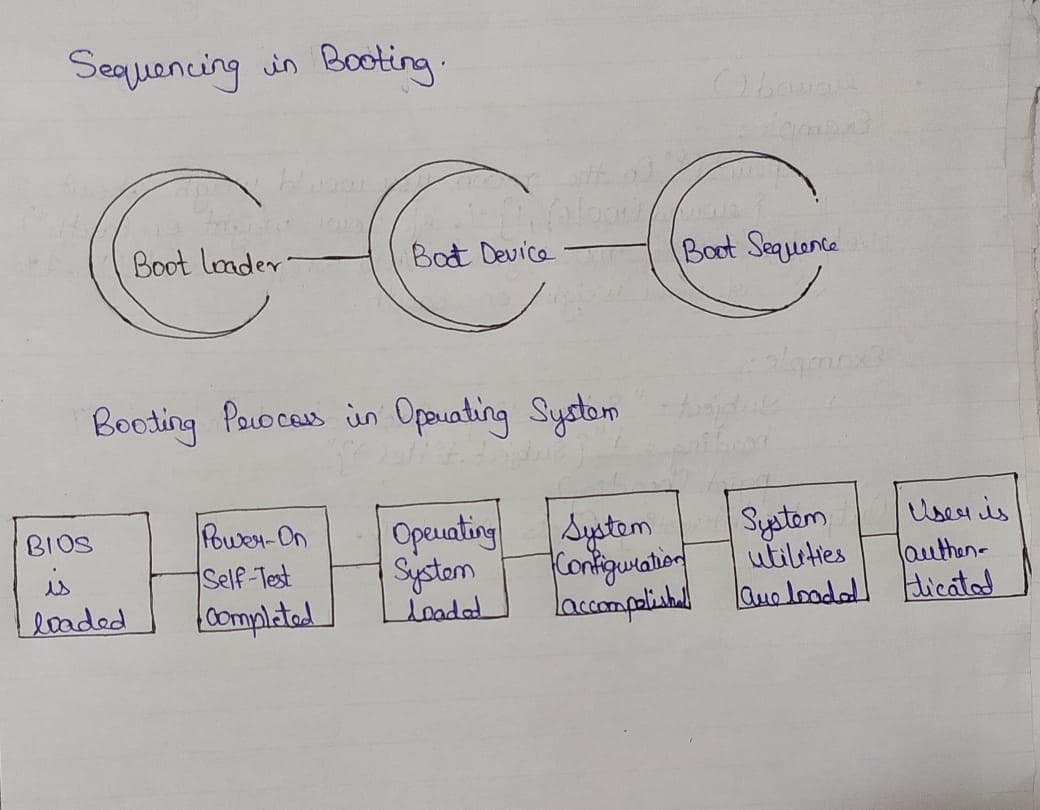 Sequencing in Booting.
Boot loader
Boot Device
Boot Sequence
Booting Process in Operating System
BIOS
is
loaded
Power-On
Self-Test
completed
Operating
System
loaded
System
Configuration
accompolished
System
utilities
are loaded
User is
authen-
ticated